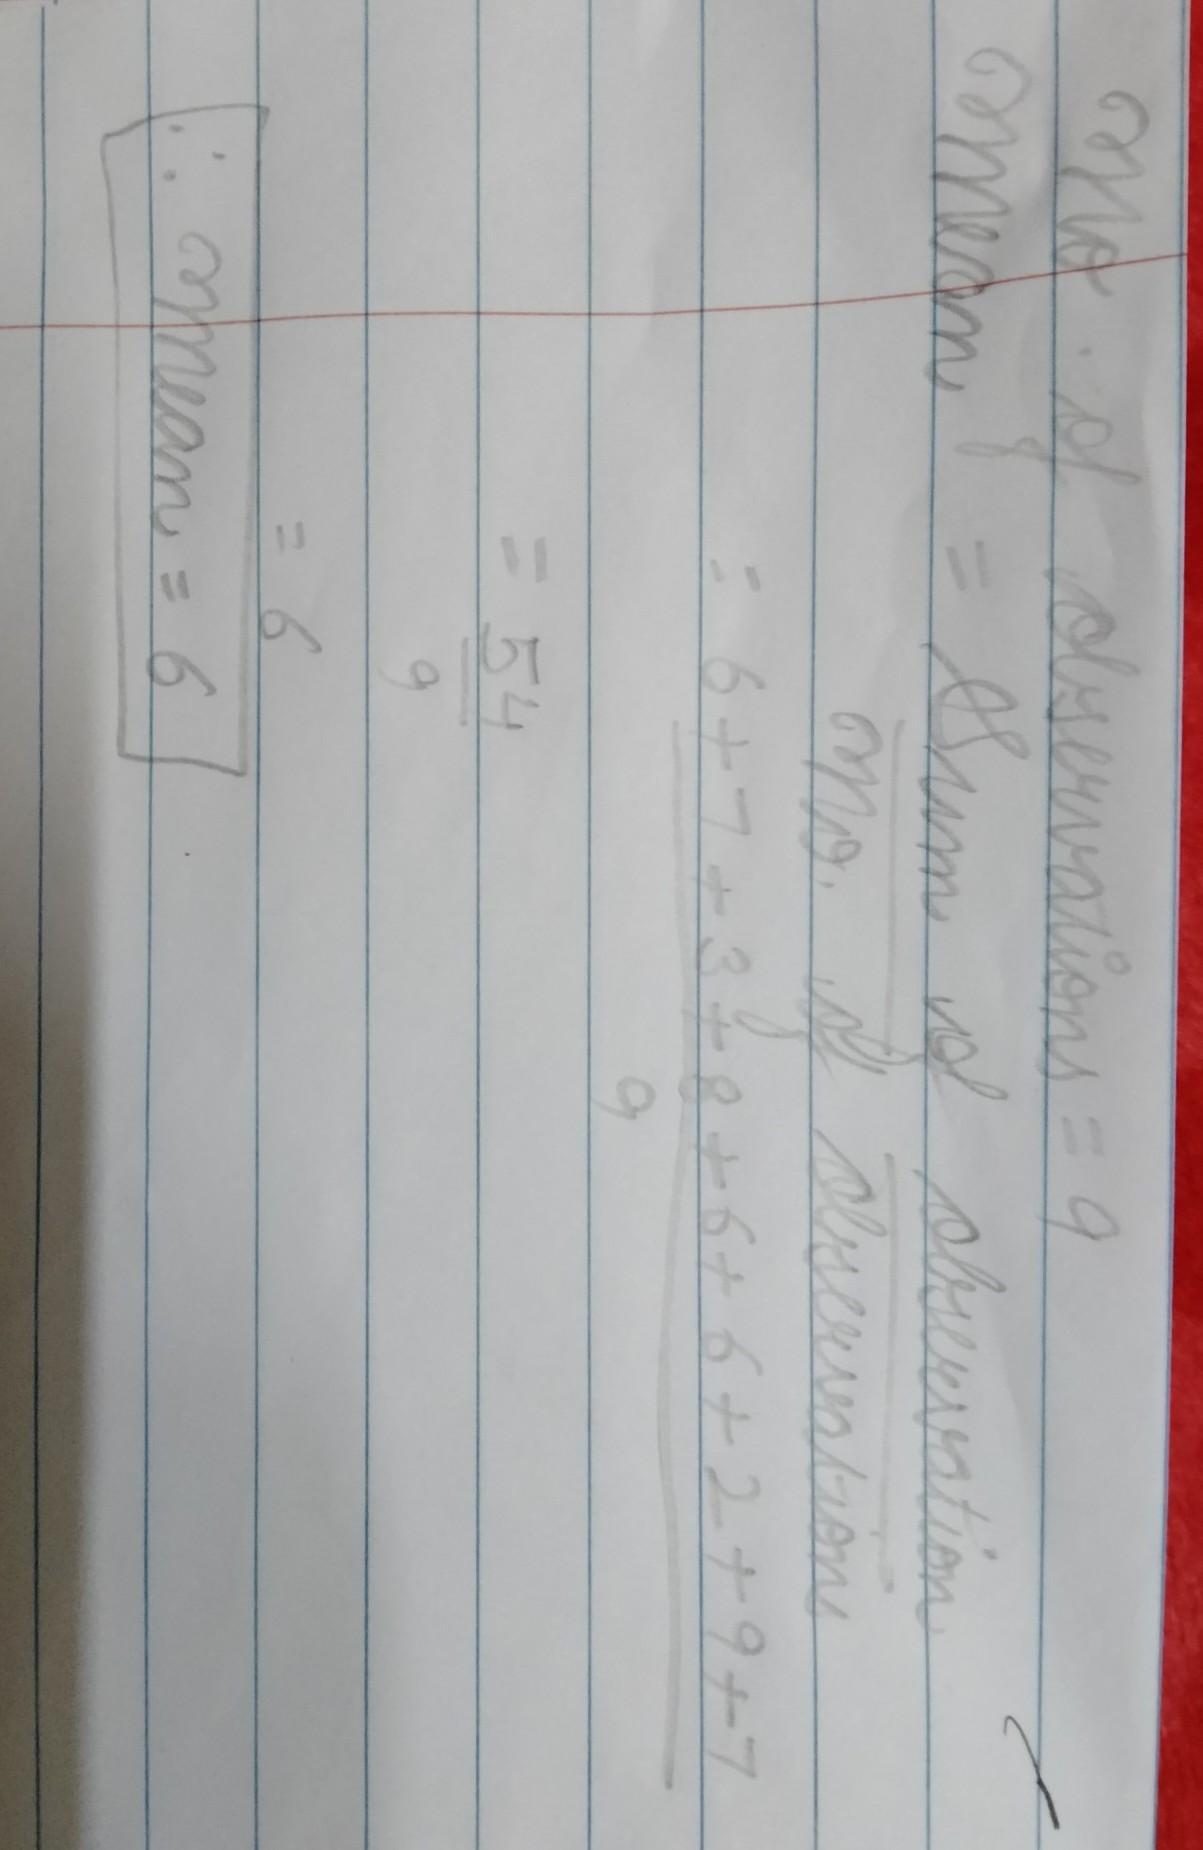 No. of observations = 9
Mean = Sum of observation
No. of observations
= 6+7+3+8+6+6+2+9+7
9
= 54
9
= 6
∴ Mean = 6